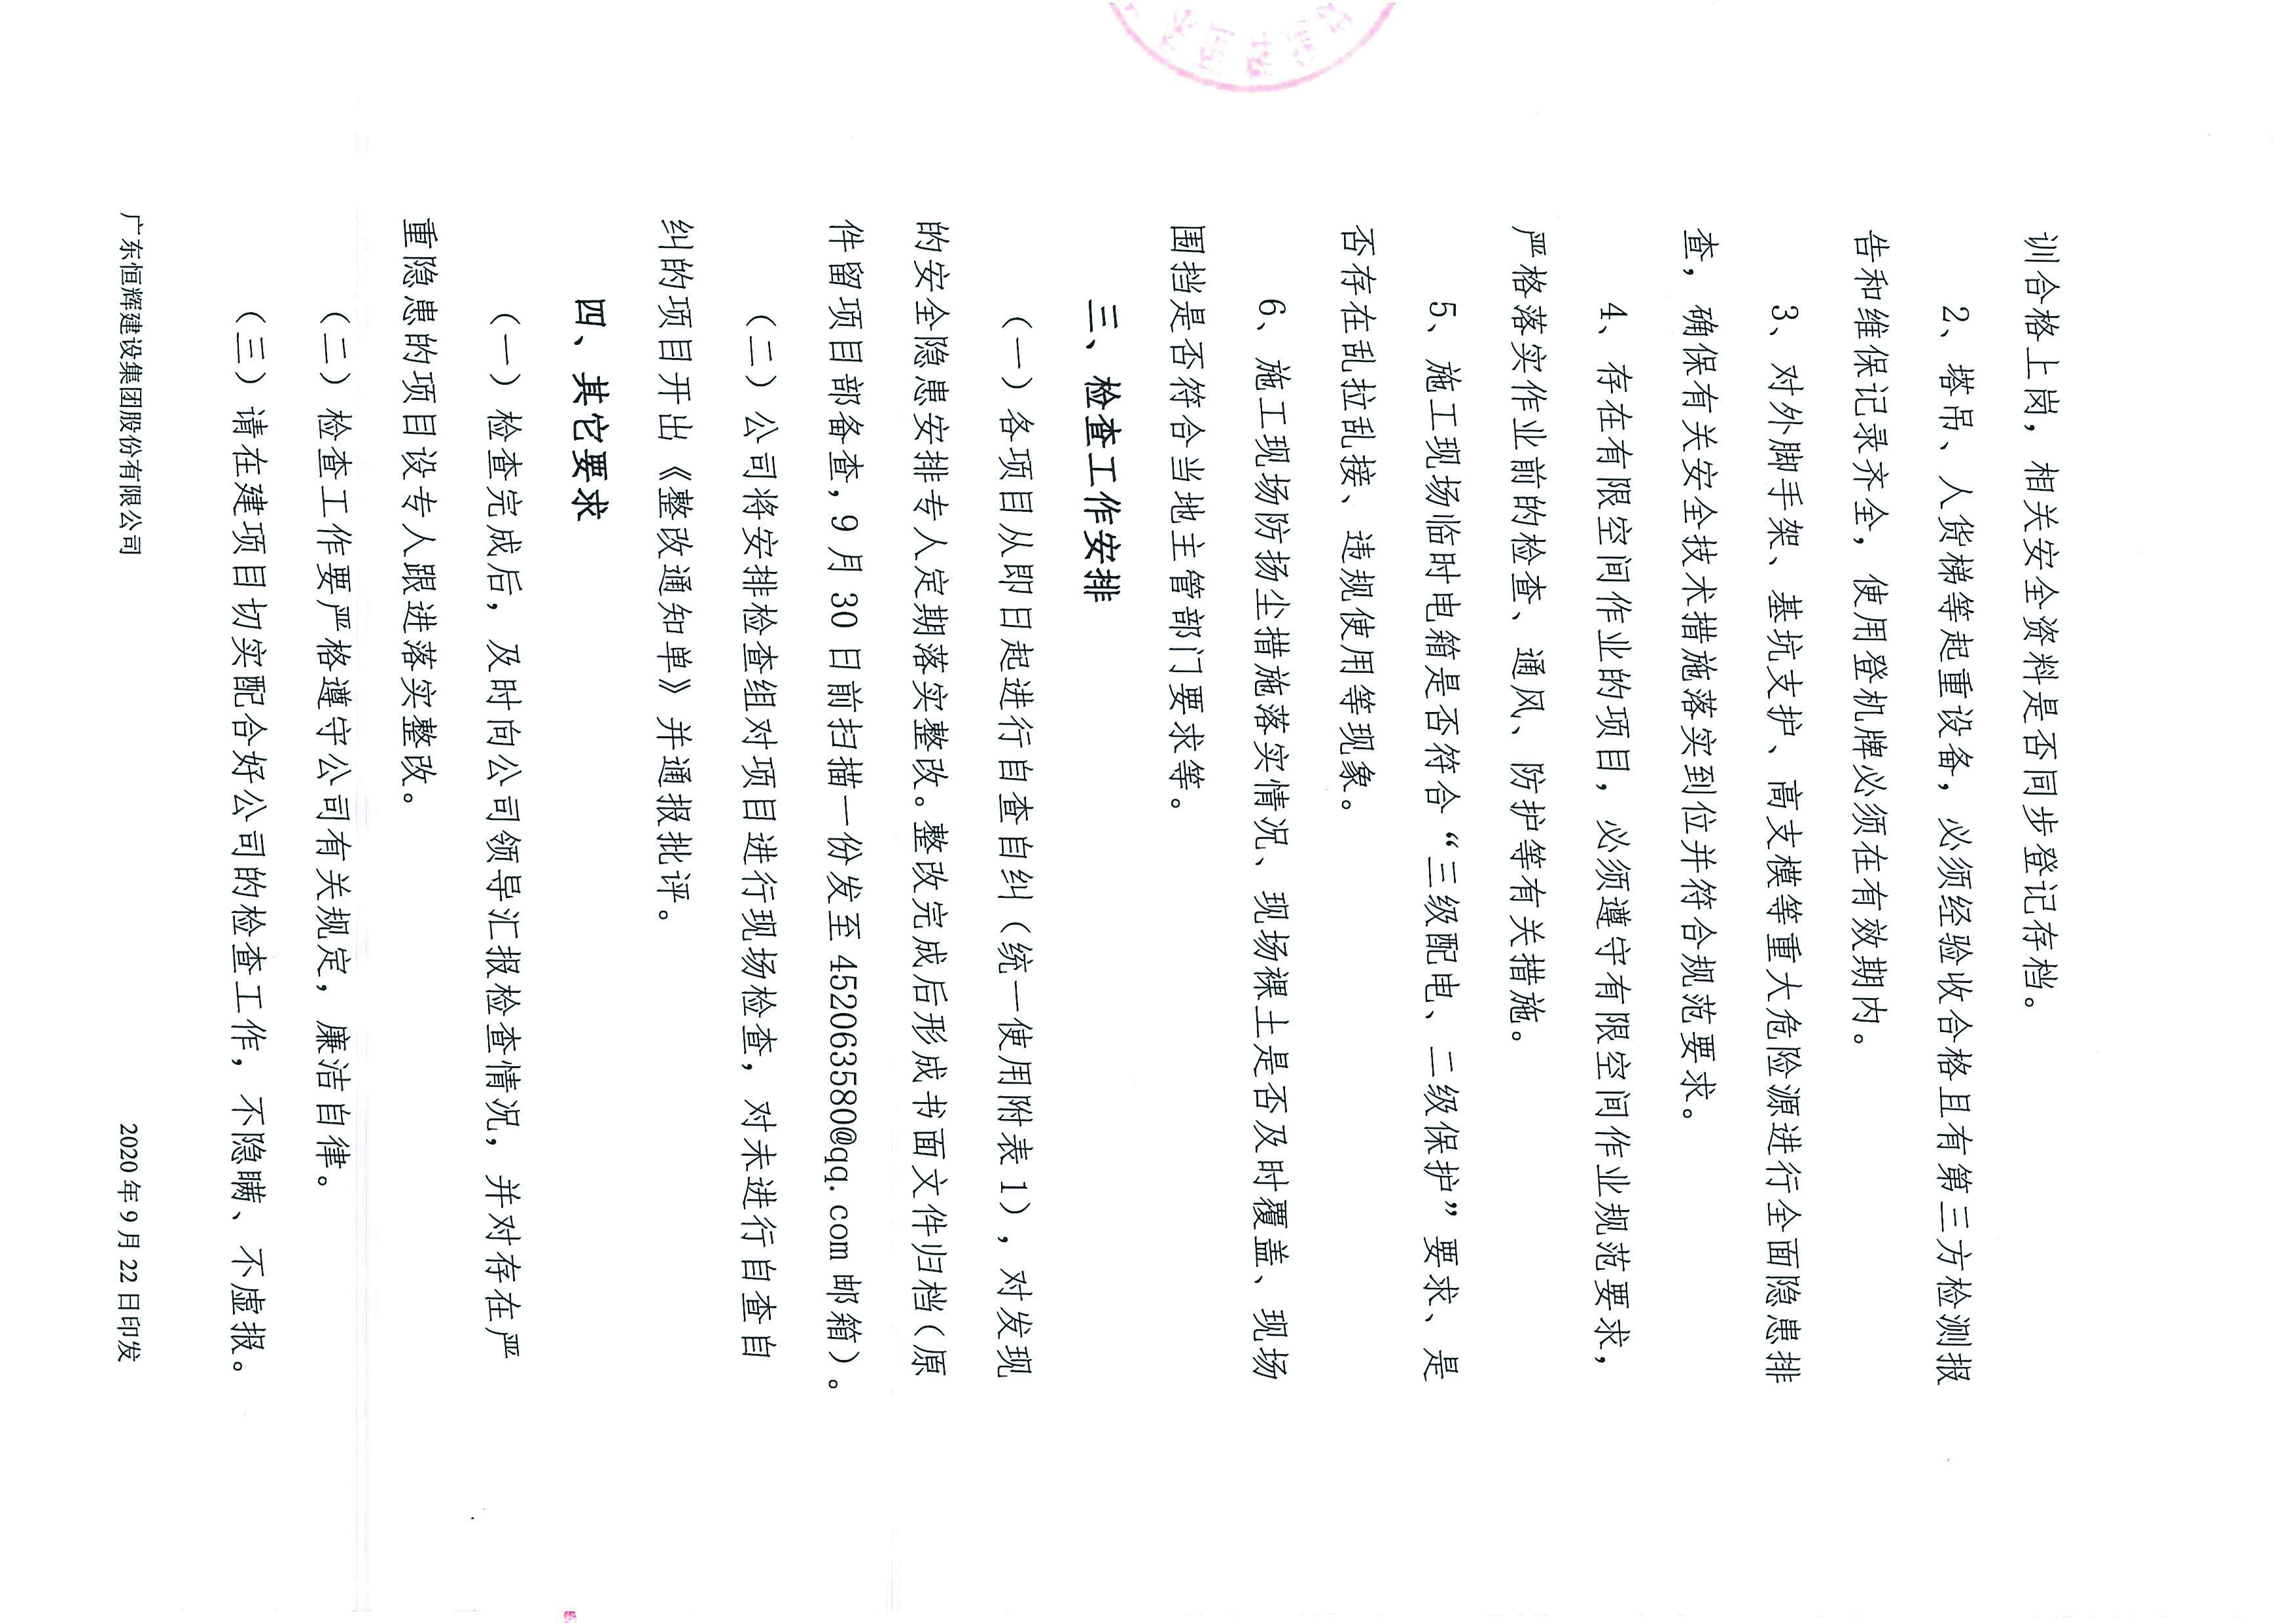 训合格上岗，相关安全资料是否同步登记存档。
2、塔吊、人货梯等起重设备，必须经验收合格且有第三方检测报
告和维保记录齐全，使用登机牌必须在有效期内。
3、对外脚手架、基坑支护、高支模等重大危险源进行全面隐患排
查，确保有关安全技术措施落实到位并符合规范要求。
4、存在有限空间作业的项目，必须遵守有限空间作业规范要求，
严格落实作业前的检查、通风、防护等有关措施。
5、施工现场临时电箱是否符合“三级配电、二级保护”要求、是
否存在乱拉乱接、违规使用等现象。
6、施工现场防扬尘措施落实情况、现场裸土是否及时覆盖、现场
围挡是否符合当地主管部门要求等。
三、检查工作安排
（一）各项目从即日起进行自查自纠（统一使用附表1），对发现
的安全隐患安排专人定期落实整改。整改完成后形成书面文件归档（原
件留项目部备查，9月30日前扫描一份发至452063580@qq.com邮箱）。
（二）公司将安排检查组对项目进行现场检查，对未进行自查自
纠的项目开出《整改通知单》并通报批评。
四、其它要求
（一）检查完成后，及时向公司领导汇报检查情况，并对存在严
重隐患的项目设专人跟进落实整改。
（二）检查工作要严格遵守公司有关规定，廉洁自律。
（三）请在建项目切实配合好公司的检查工作，不隐瞒、不虚报。
广东恒辉建设集团股份有限公司 2020年9月22日印发